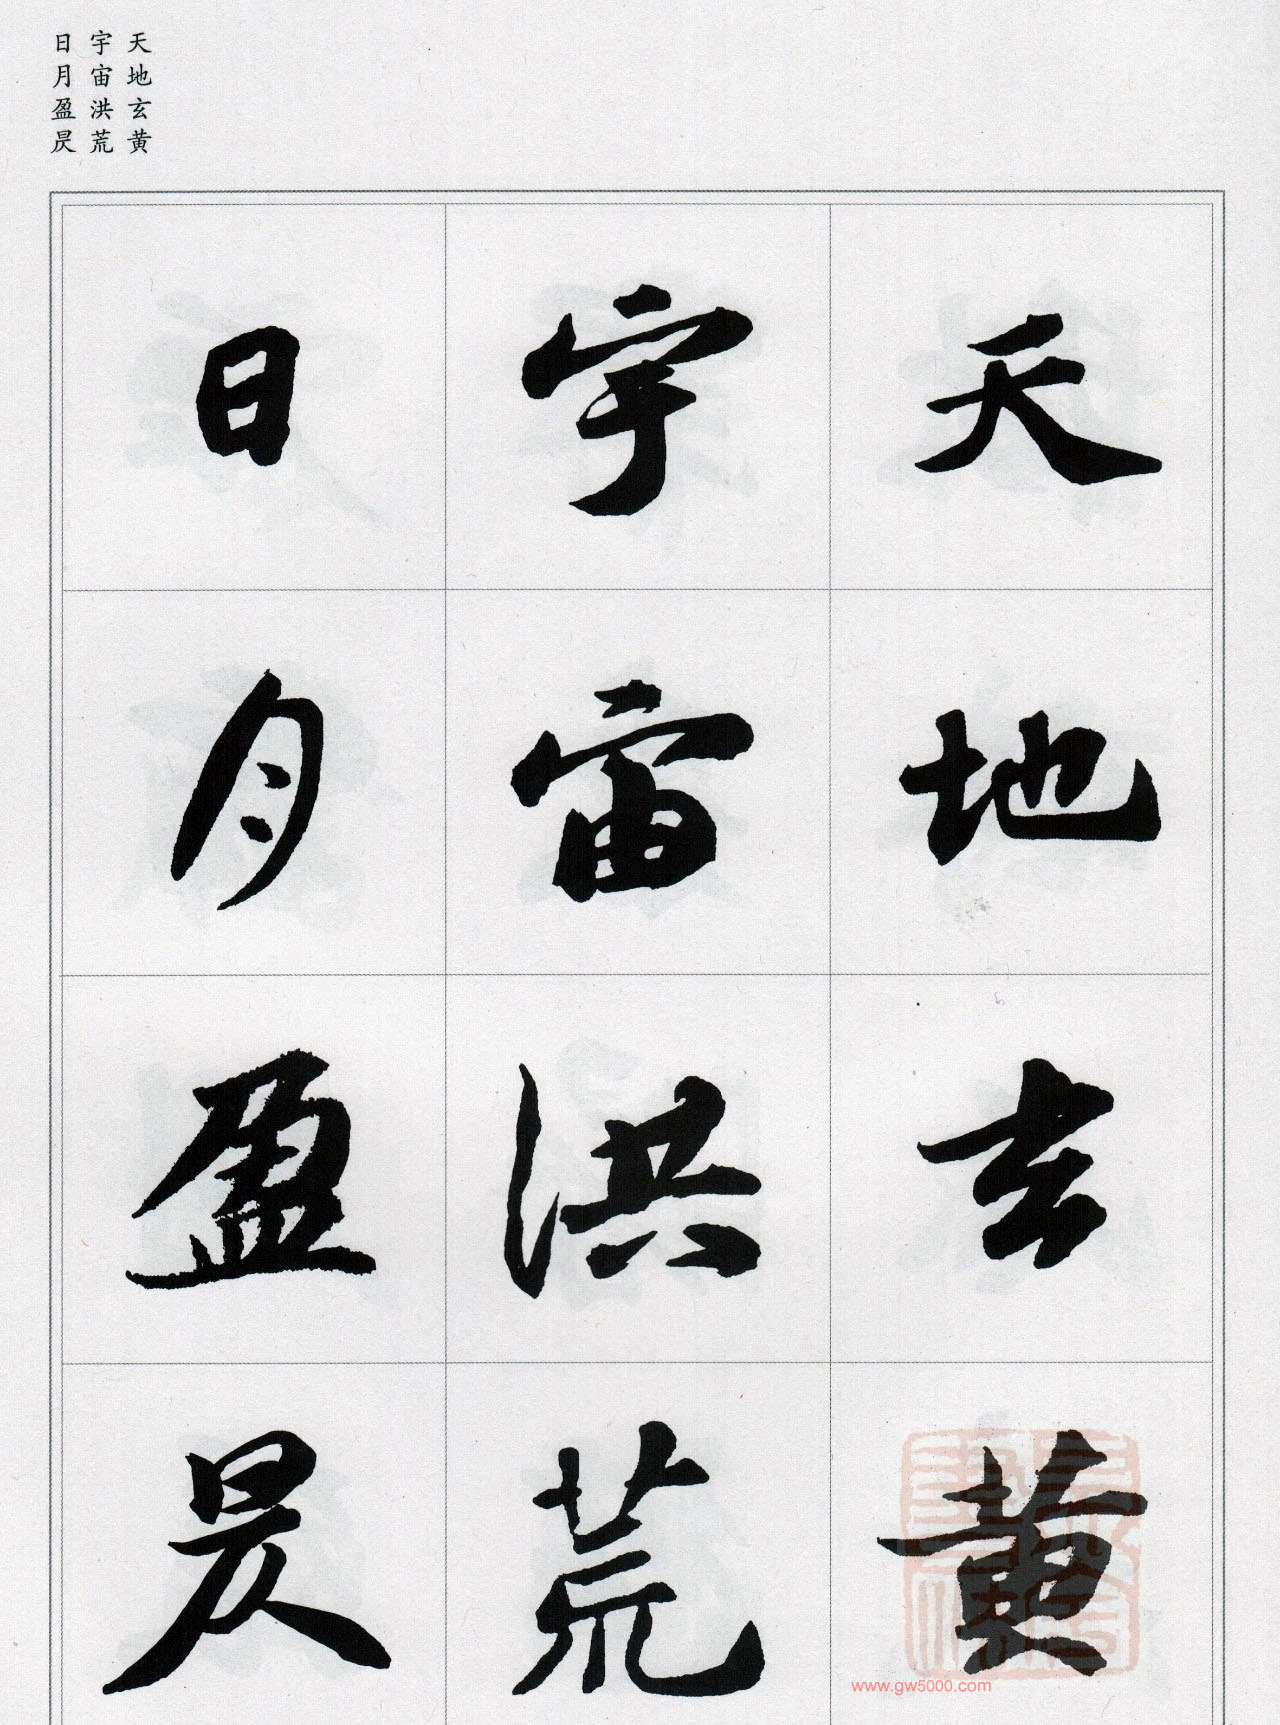 天地玄黄
宇宙洪荒
日月盈昃
天地玄黄
宇宙洪荒
日月盈昃
www.gw5000.com